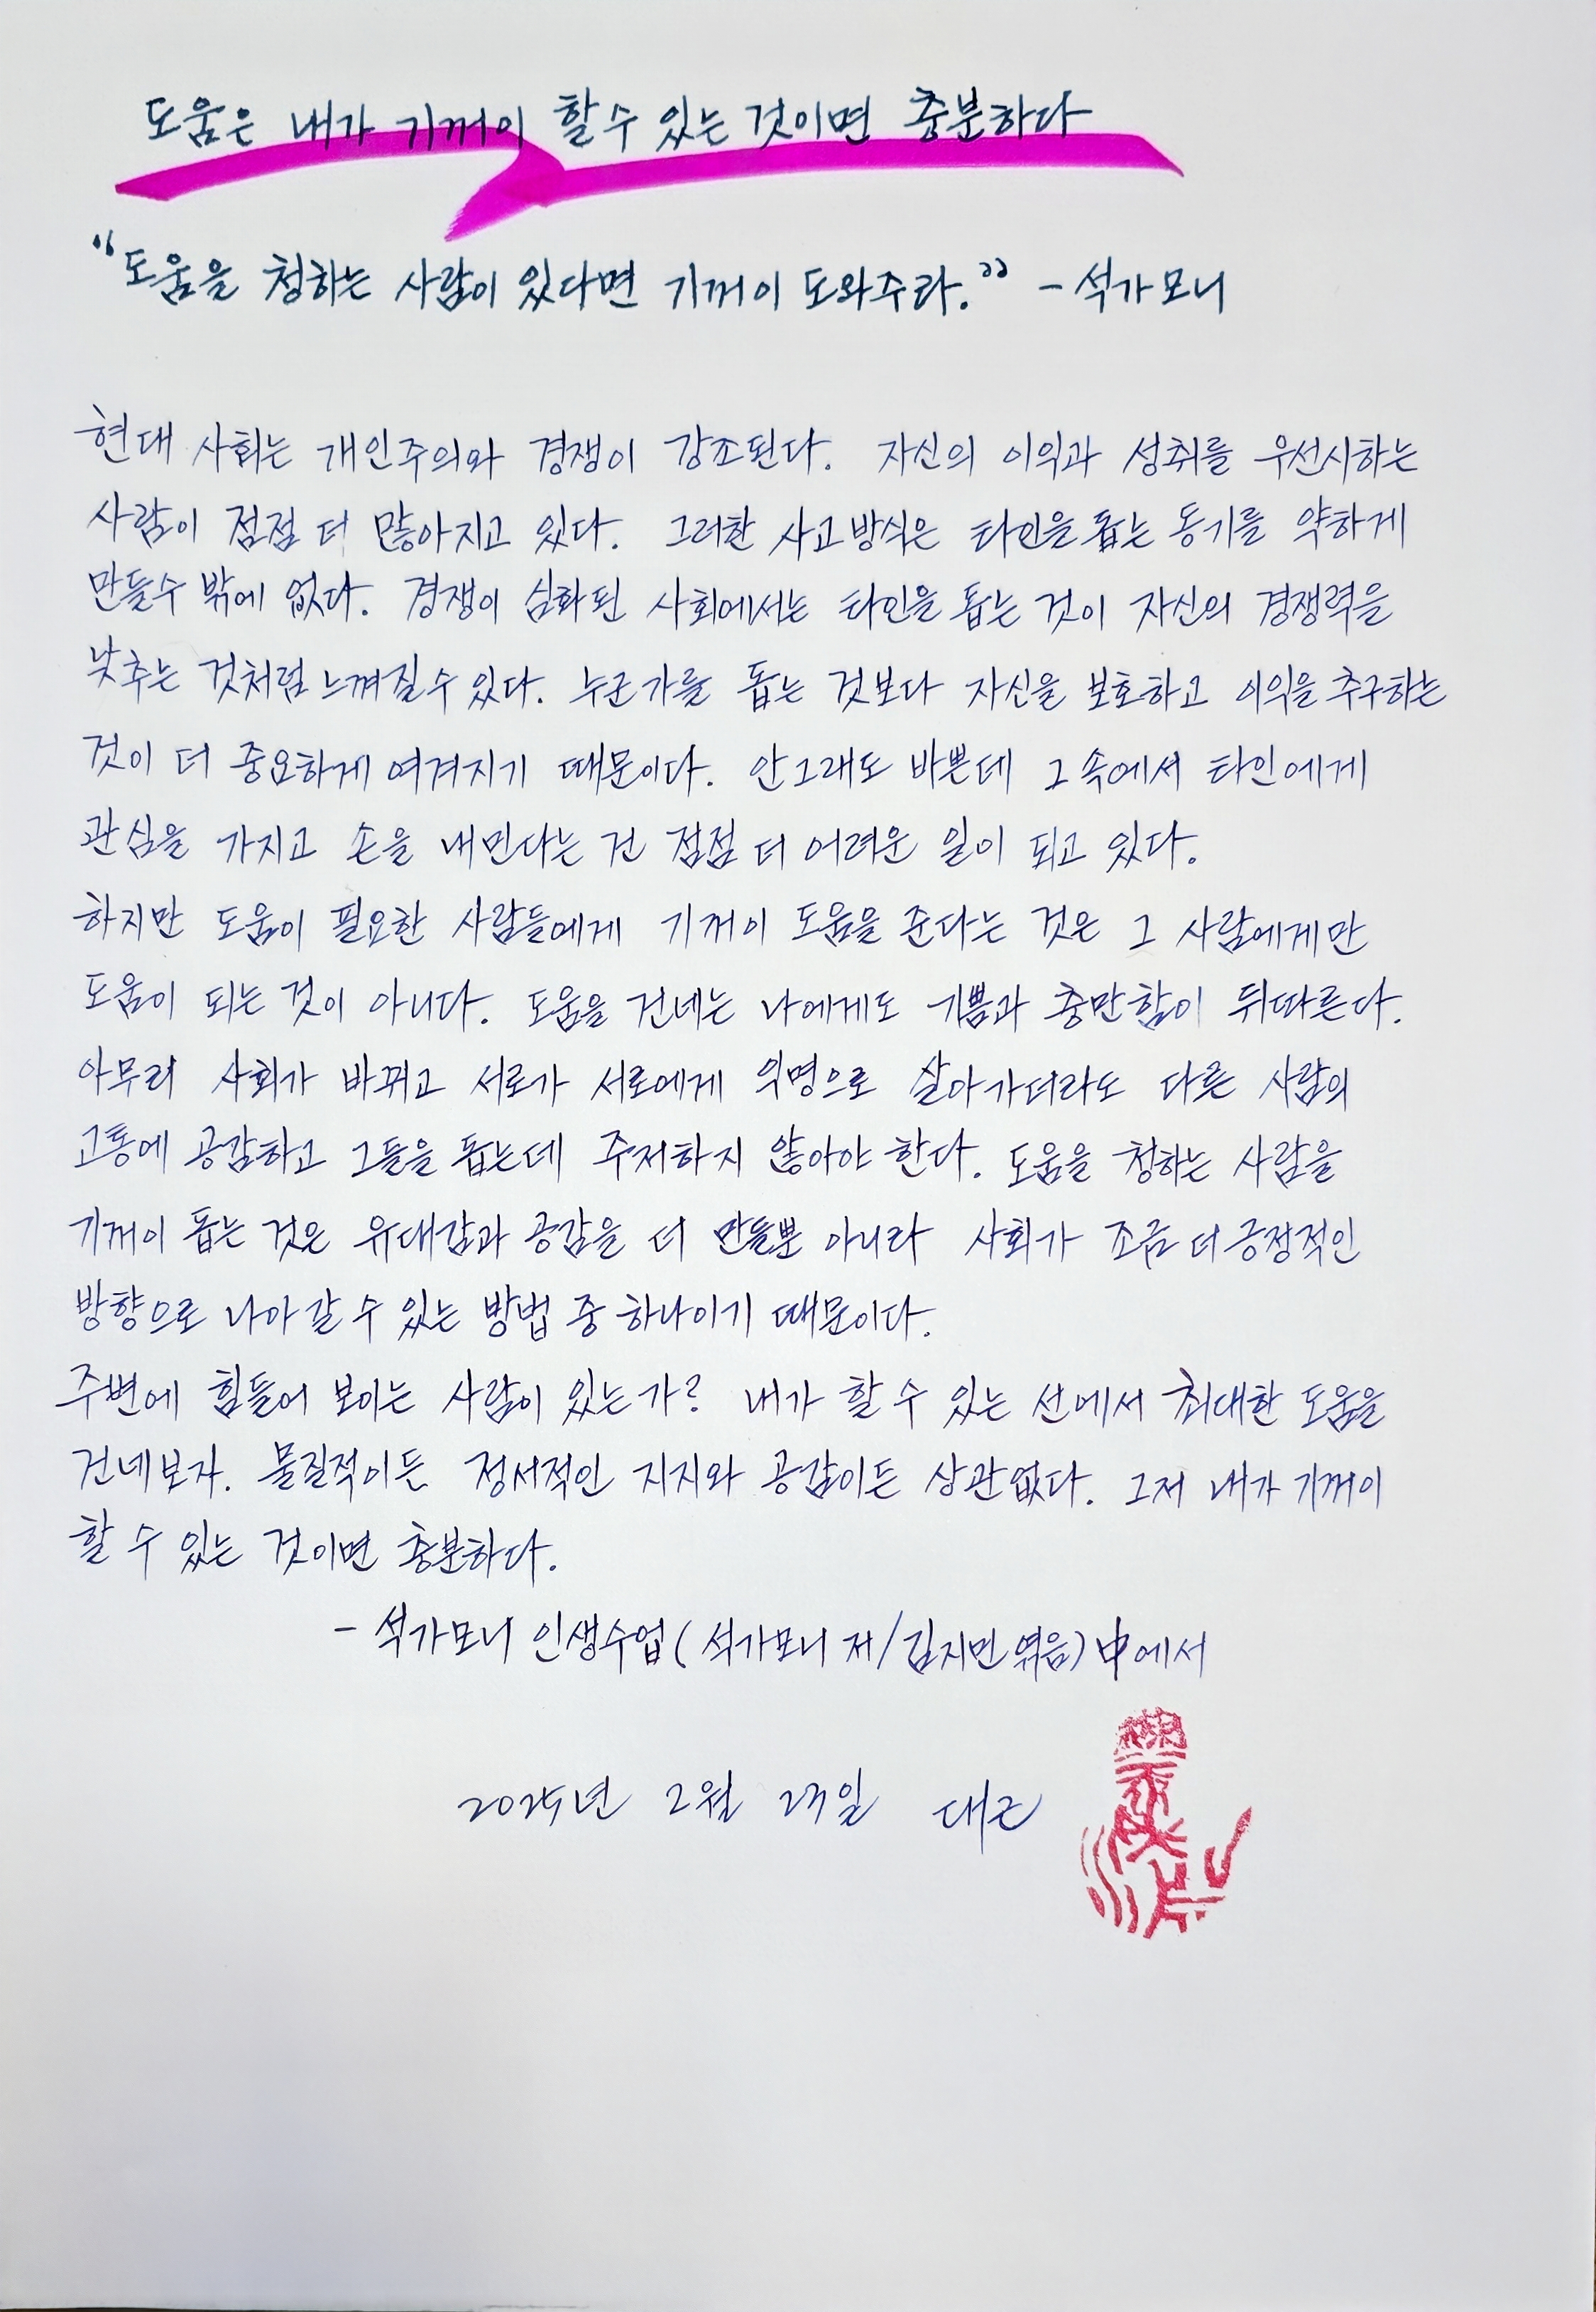 도움은 내가 기꺼이 할 수 있는 것이면 충분하다
“도움을 청하는 사람이 있다면 기꺼이 도와주라.” - 석가모니
현대 사회는 개인주의와 경쟁이 강조된다. 자신의 이익과 성취를 우선시하는
사람이 점점 더 많아지고 있다. 그러한 사고방식은 타인을 돕는 동기를 약하게
만들수 밖에 없다. 경쟁이 심화된 사회에서는 타인을 돕는 것이 자신의 경쟁력을
낮추는 것처럼 느껴질 수 있다. 누군가를 돕는 것보다 자신을 보호하고 이익을 추구하는
것이 더 중요하게 여겨지기 때문이다. 안그래도 바쁜데 그 속에서 타인에게
관심을 가지고 손을 내민다는 건 점점 더 어려운 일이 되고 있다.
하지만 도움이 필요한 사람들에게 기꺼이 도움을 준다는 것은 그 사람에게만
도움이 되는 것이 아니다. 도움을 건네는 나에게도 기쁨과 충만함이 뒤따른다.
아무리 사회가 바뀌고 서로가 서로에게 익명으로 살아가더라도 다른 사람의
고통에 공감하고 그들을 돕는데 주저하지 않아야 한다. 도움을 청하는 사람을
기꺼이 돕는 것은 유대감과 공감을 더 만들뿐 아니라 사회가 조금 더 긍정적인
방향으로 나아갈 수 있는 방법 중 하나이기 때문이다.
주변에 힘들어 보이는 사람이 있는가? 내가 할 수 있는 선에서 최대한 도움을
건네보자. 물질적이든 정서적인 지지와 공감이든 상관없다. 그저 내가 기꺼이
할 수 있는 것이면 충분하다.
- 석가모니 인생수업 (석가모니 저/김지민 엮음) 中에서
2025년 2월 23일 대근